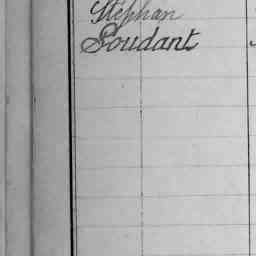 Stephan
Soudant